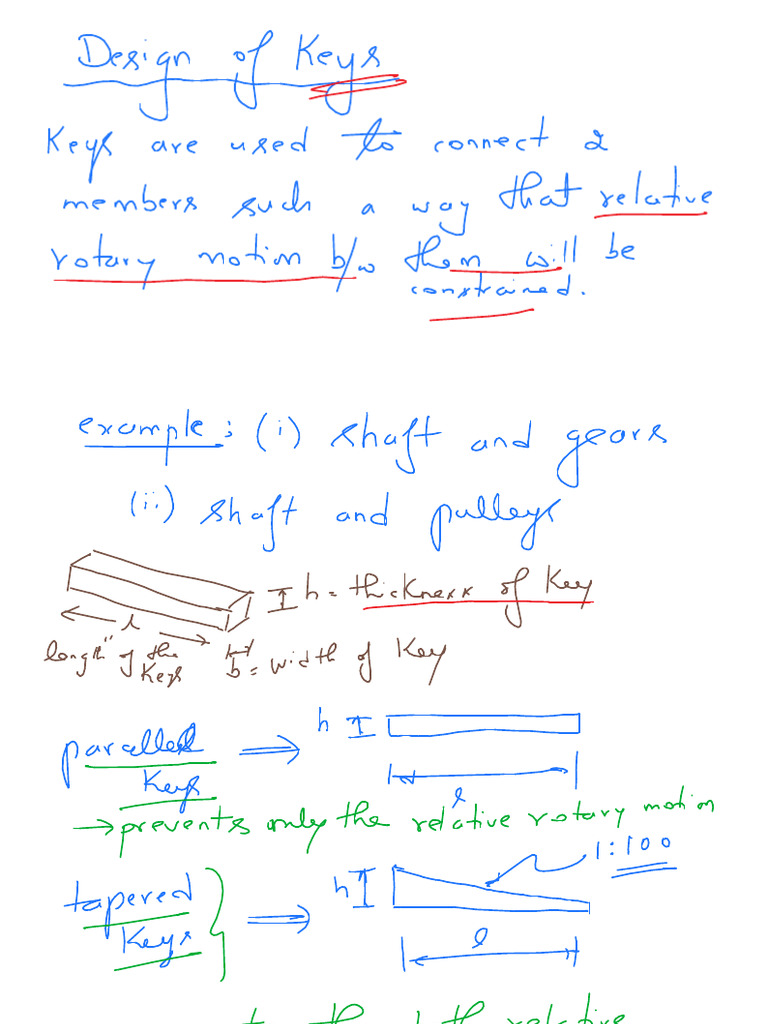 Design of Keys
Keys are used to connect 2
members such a way that relative
rotary motion b/w them will be
constrained.
example: (i) shaft and gears
(ii) shaft and pulleys
h = thickness of Key
l
length of the
Keys
b = width of Key
parallel
Keys
h
l
→ prevents only the relative rotary motion
1:100
tapered
Keys
h
l
the relative